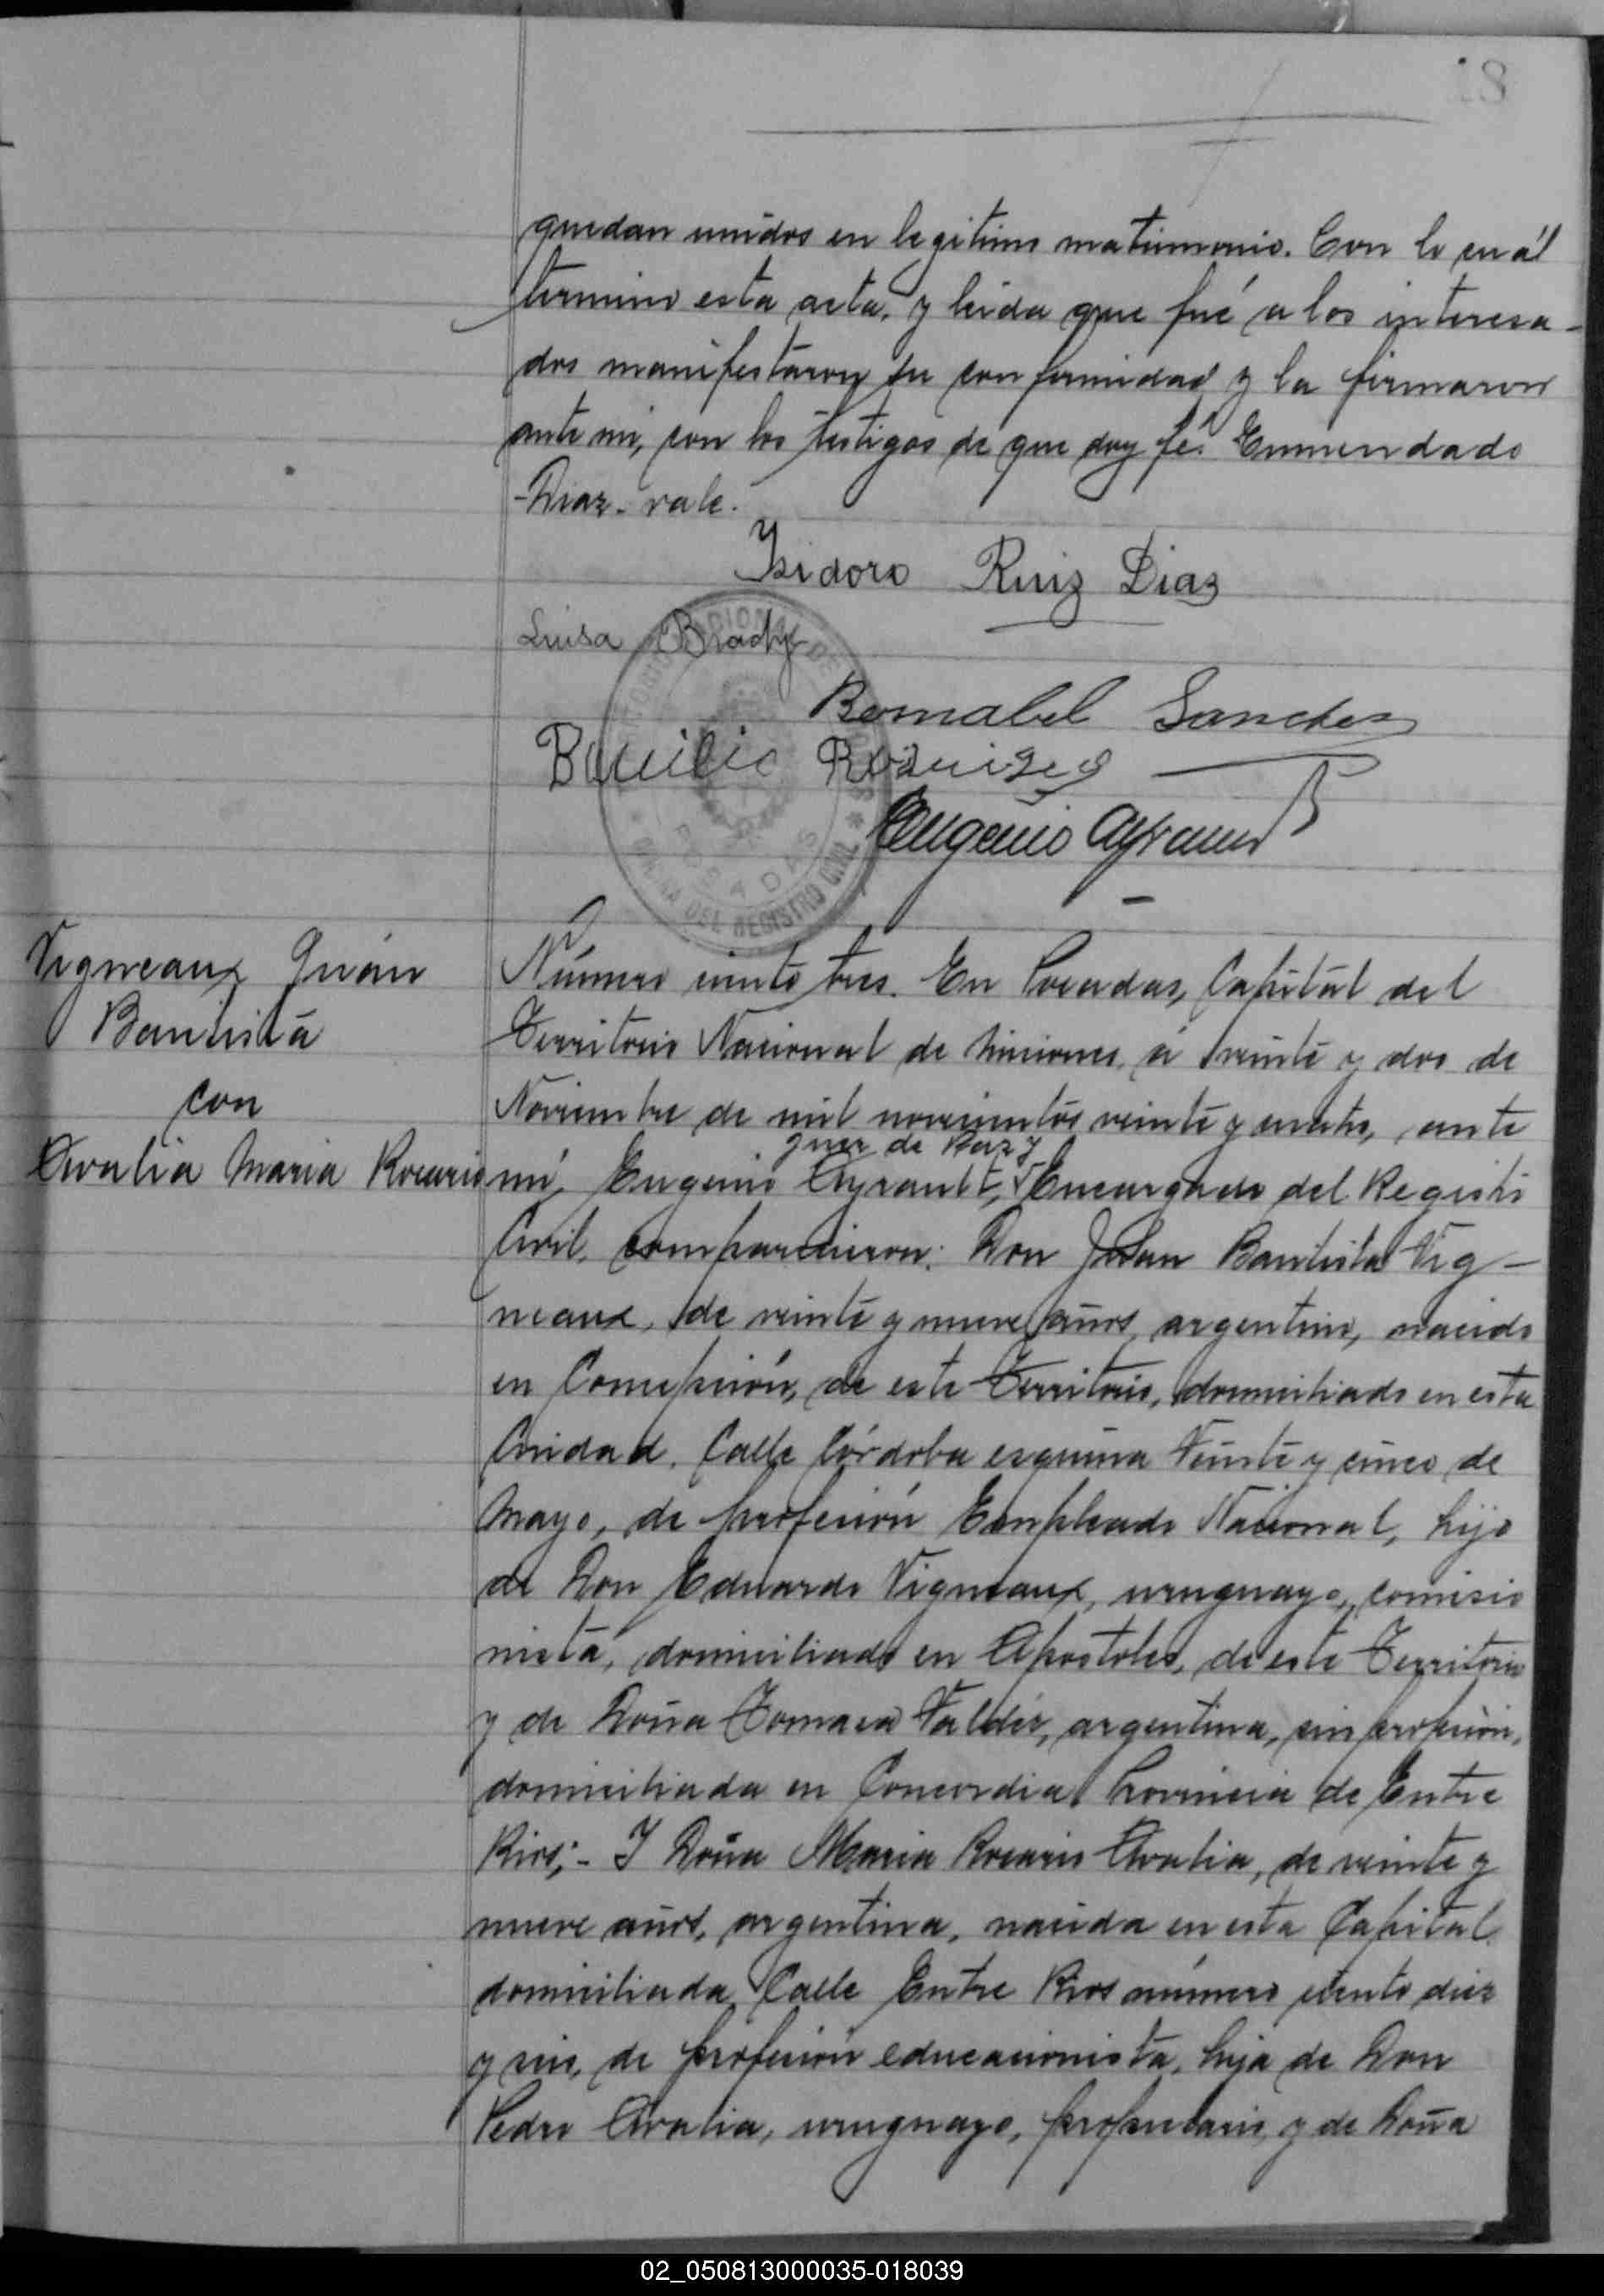 18
quedan unidos en legitimo matrimonio. Con lo cuál
termino esta acta, y leida que fué a los interesa-
dos manifestaron su conformidad y la firmaron
ante mi, con los testigos de que doy fé. Enmendado
-Diaz- vale.
Isidoro Ruiz Diaz
Luisa
Sanchez
Eugenio
REGISTRO CIVIL
POSADAS
Vigneaux Juán
Bautista
con
Avalia Maria Rosario
Número ciento tres. En Posadas, Capitál del
Territorio Nacional de Misiones, á veinte y dos de
Noviembre de mil novecientos veinte y cuatro, ante
Juez de Paz y
mi, Eugenio Ayrault, Encargado del Registro
Civil, comparecieron: Don Juan Bautista Vig-
neaux, de veinte y nueve años, argentino, nacido
en Concepción, de este Territorio, domiciliado en esta
Ciudad, Calle Córdoba esquina Veinte y cinco de
Mayo, de profesión Empleado Nacional, hijo
de Don Eduardo Vigneaux, uruguayo, comisio
nista, domiciliado en Apostoles, de este Territorio
y de Doña Tomasa Valdéz, argentina, sin profesión,
domiciliada en Concordia Provincia de Entre
Rios;- Y Doña Maria Rosario Avalia, de veinte y
nueve años, argentina, nacida en esta Capital
domiciliada Calle Entre Rios número ciento diez
y seis, de profesión educacionista, hija de Don
Pedro Avalia, uruguayo, propietario, y de Doña
02_050813000035-018039